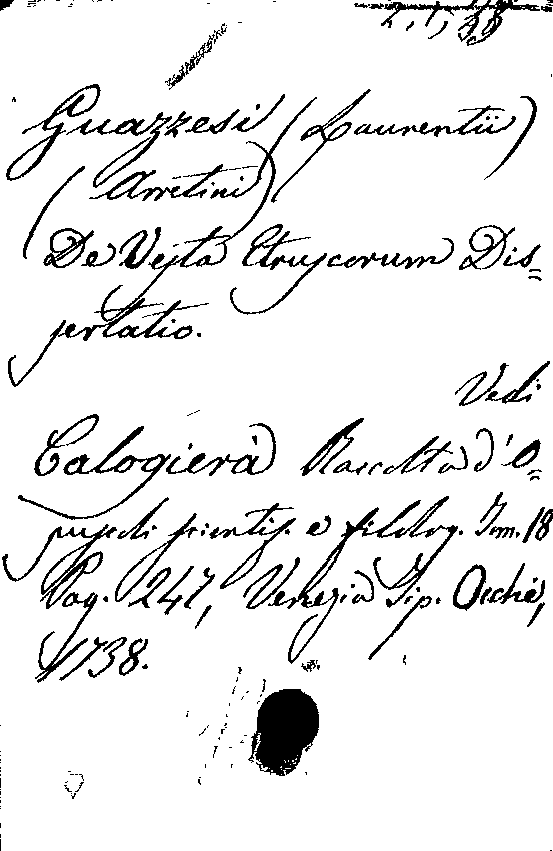 2, 1, 33
Guazzesi (Laurentii)
(Arretini)
De Vejta Etruscorum Dis=
sertatio.
Vedi
Calogierà Raccolta d'O=
puscoli scientif. e filolog. Tom. 18
Pag. 247, Venezia Tip. Occhi,
1738.